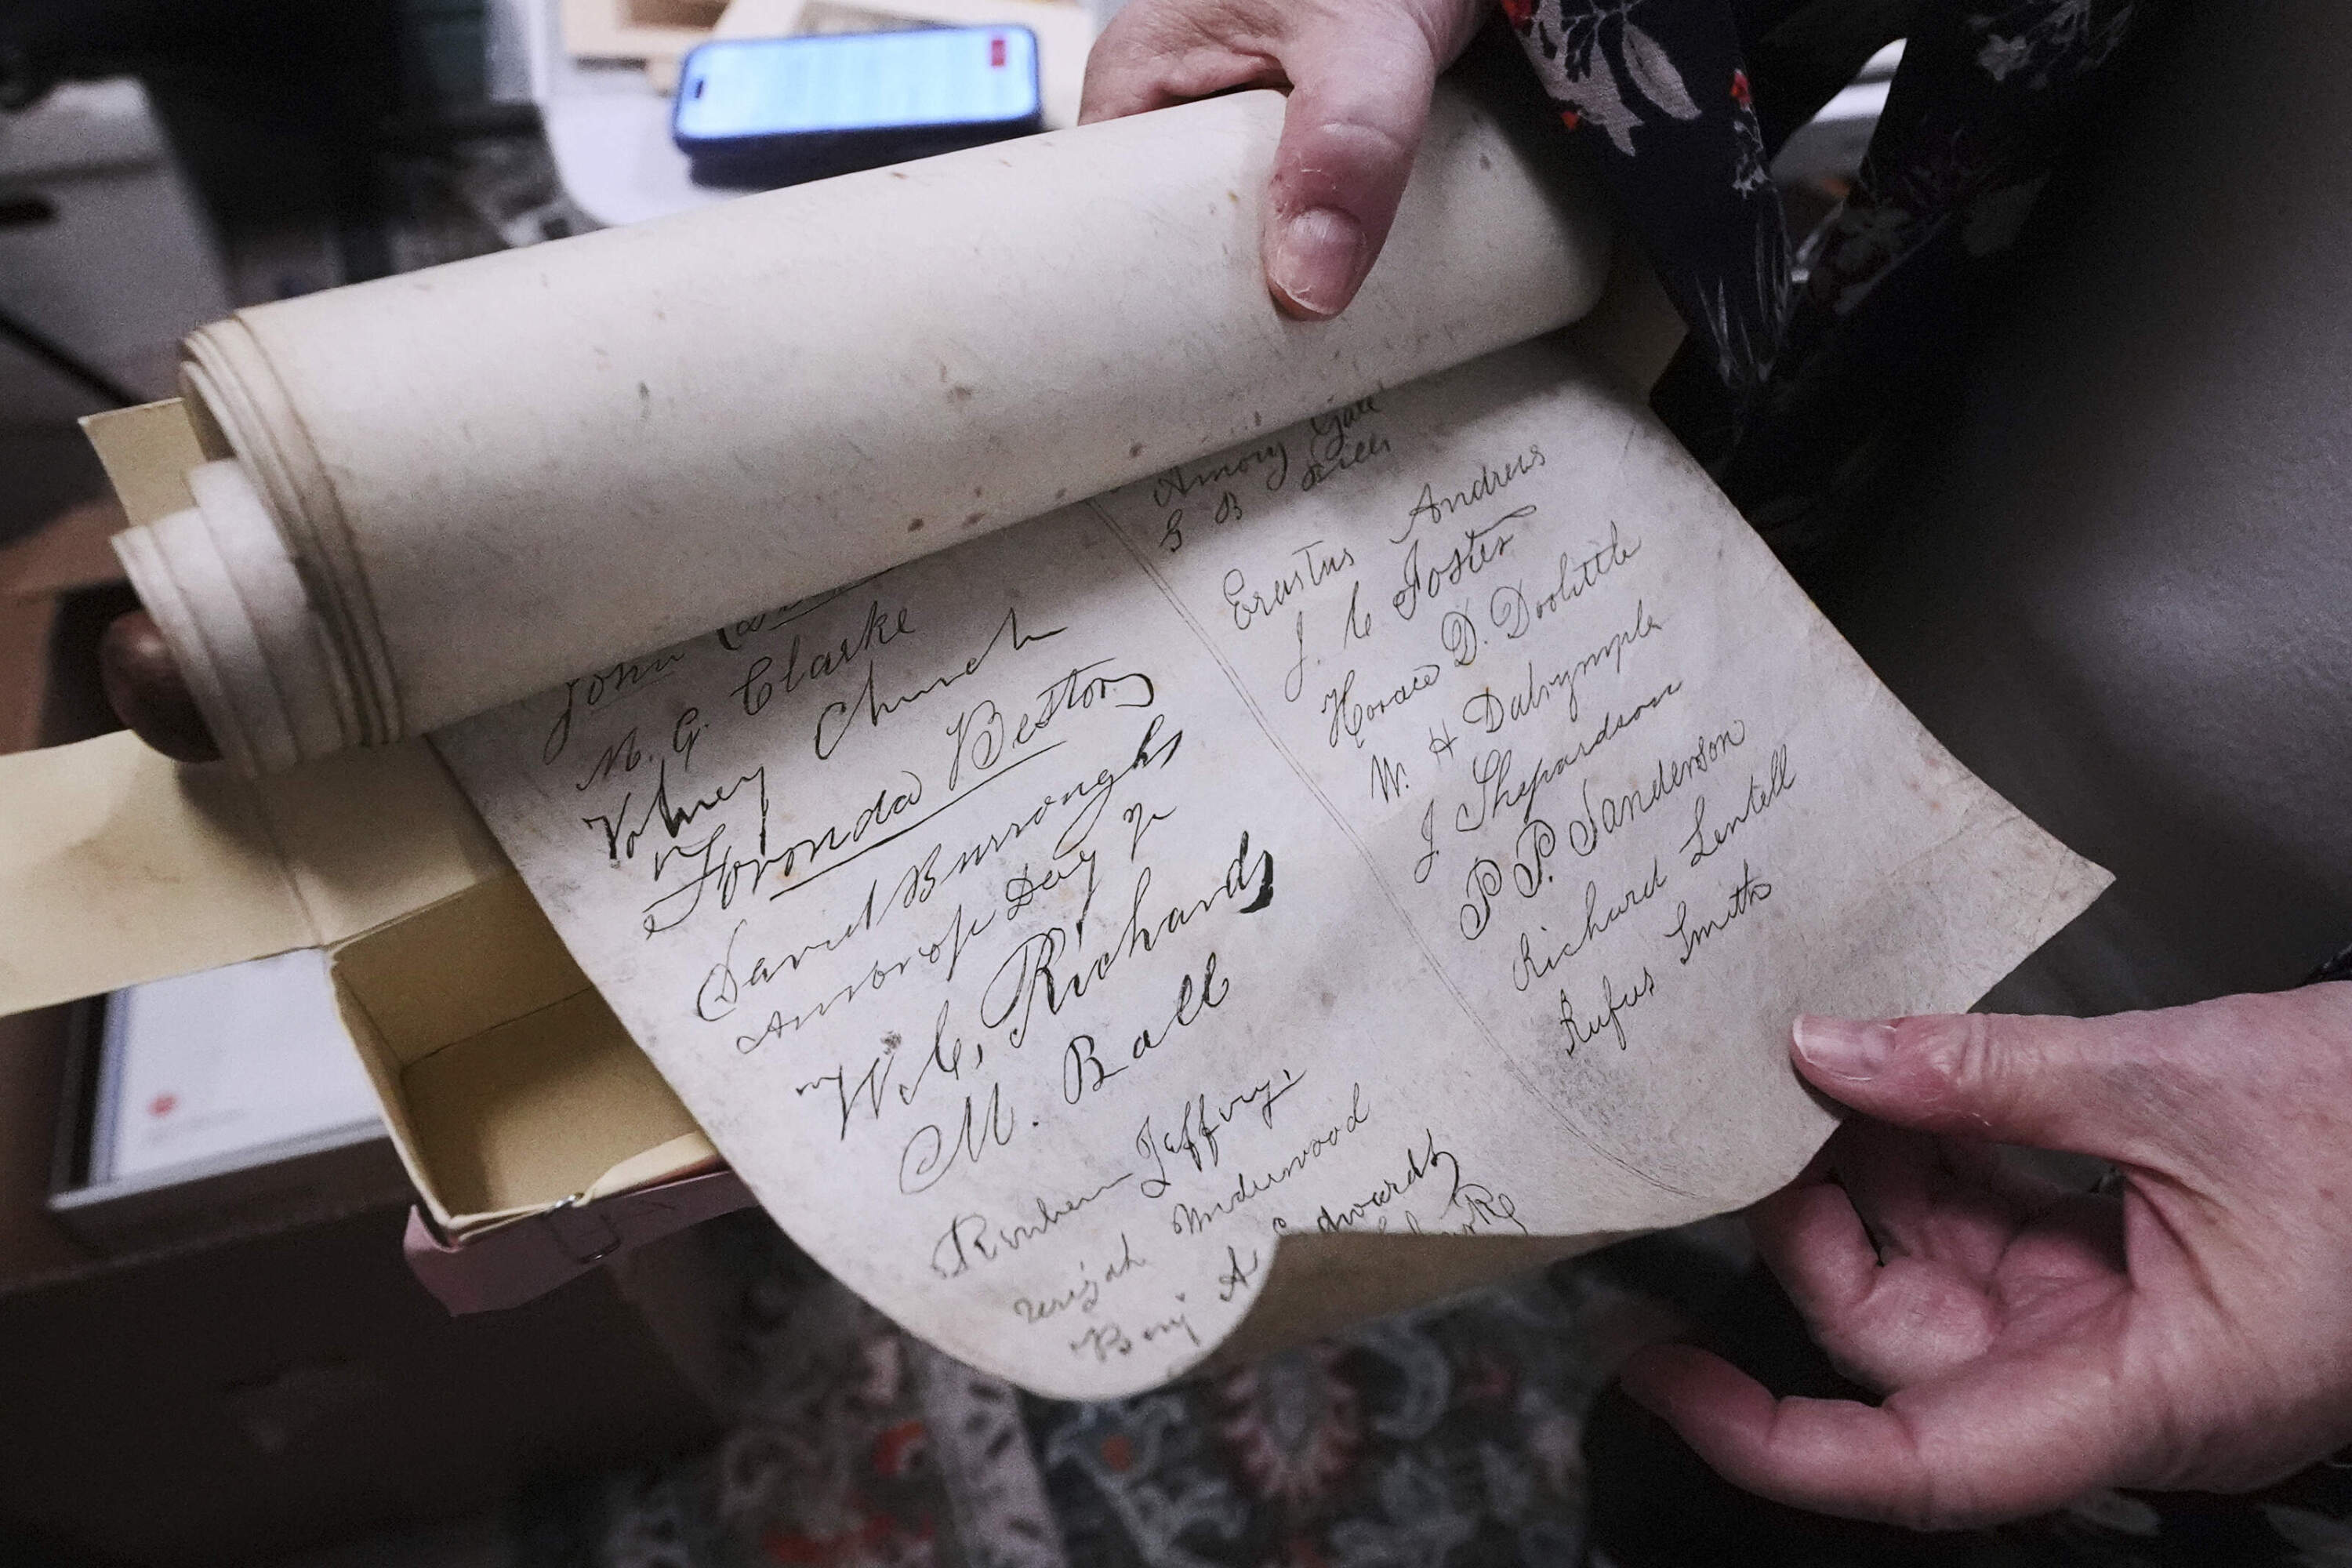 John
M. G. Clarke
Volney Church
Foronda Bestor
David Burroughs
Amorose Day Jr
W. C. Richards
M. Ball
Reuben Jeffrey
Underwood
Benj A Edwards
Amory Gale
G B
Erastus Andrews
J. C Foster
Horace D. Doolittle
W. H Dalrymple
J Shepardson
P. P. Sanderson
Richard Lentell
Rufus Smith